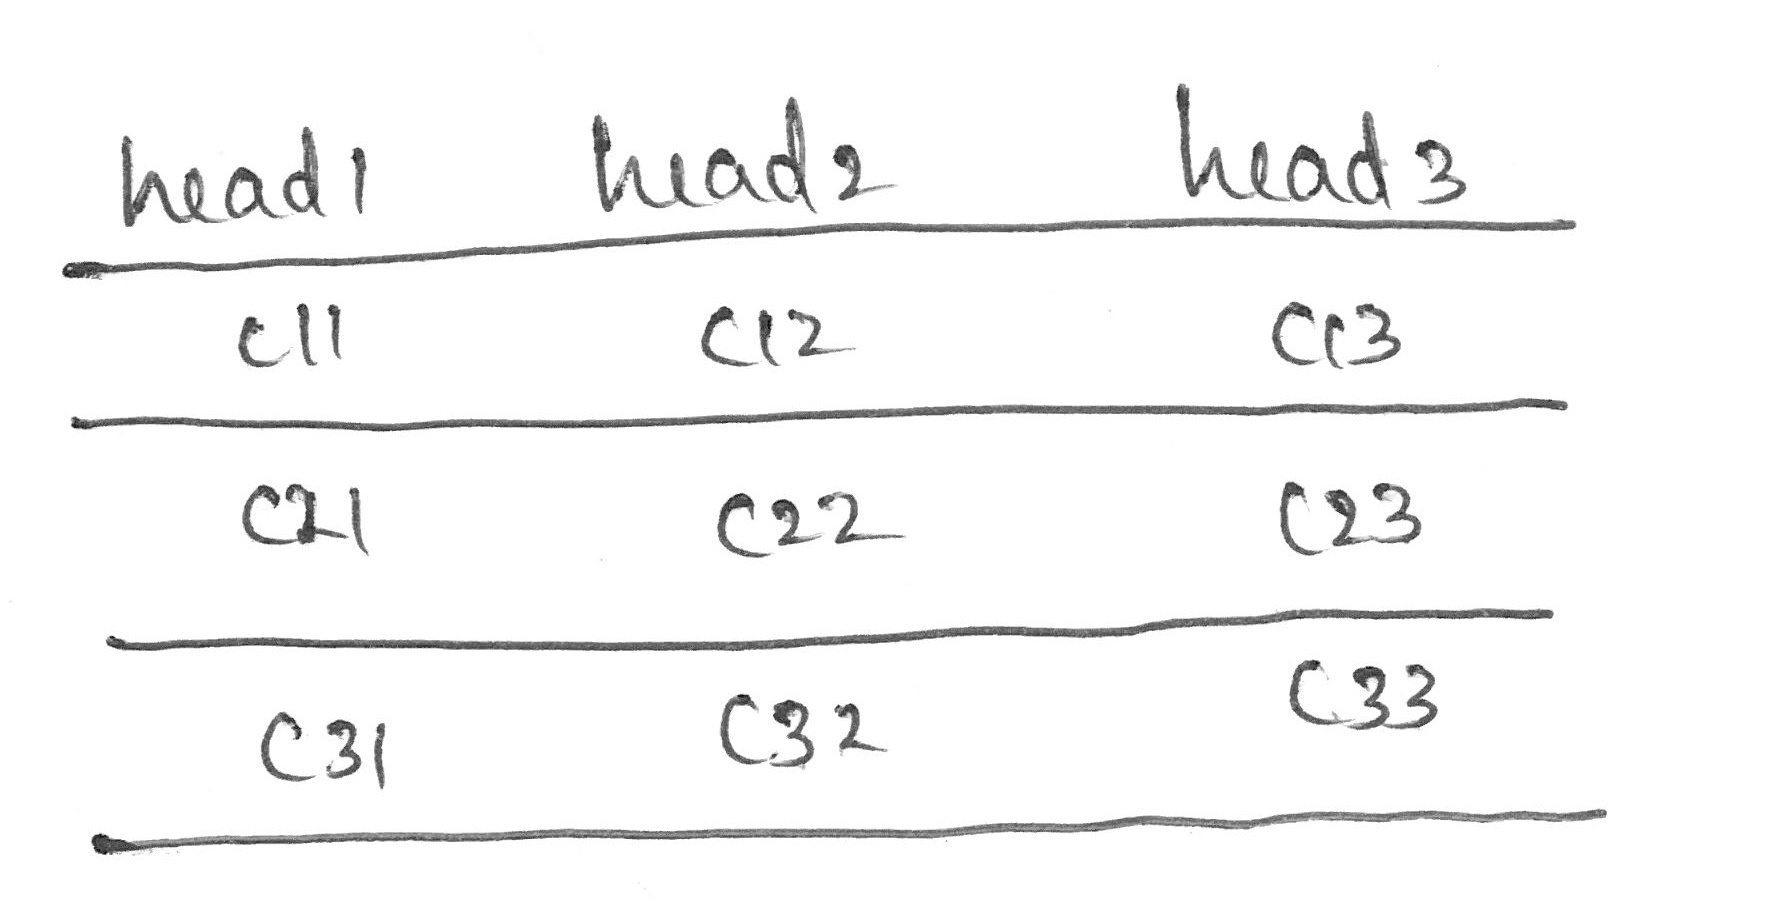 head1 head2 head3
c11 c12 c13
c21 c22 c23
c31 c32 c33